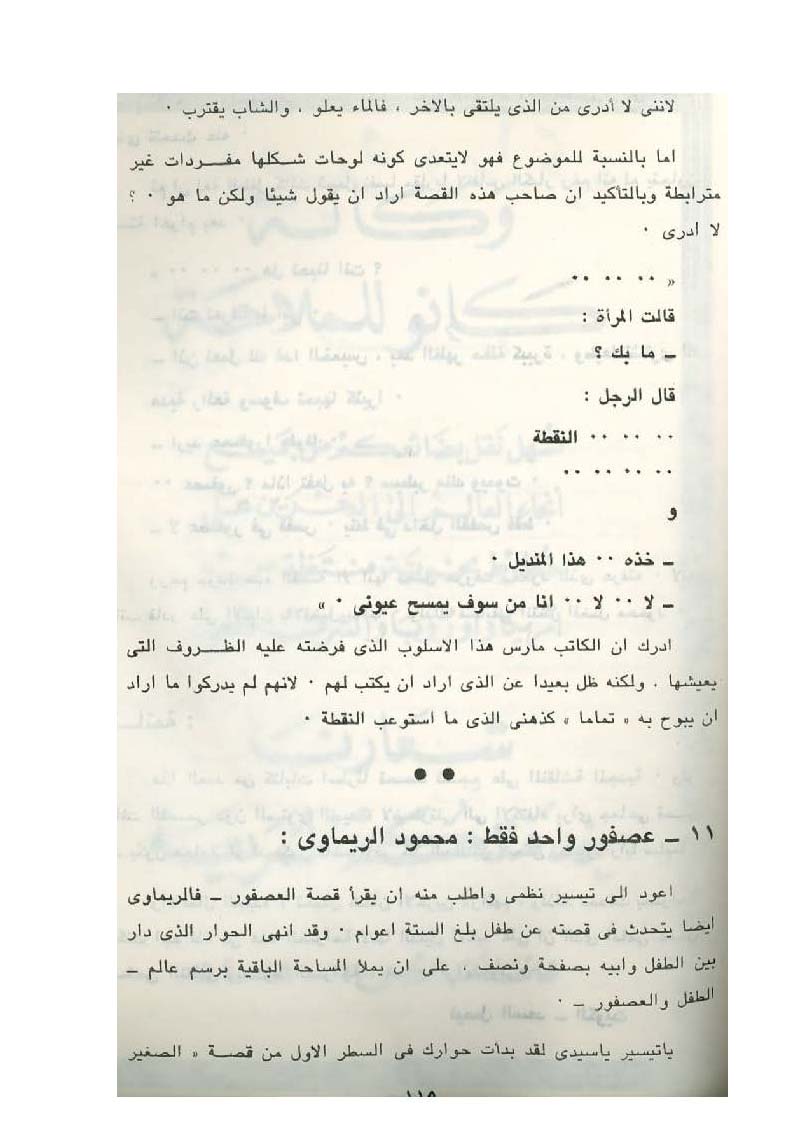 لاننى لا أدرى من الذى يلتقى بالاخر ، فالماء يعلو ، والشاب يقترب ٠
اما بالنسبة للموضوع فهو لايتعدى كونه لوحات شكلها مفردات غير
مترابطة وبالتأكيد ان صاحب هذه القصة اراد ان يقول شيئا ولكن ما هو ٠ ؟
لا ادرى ٠
« ٠٠ ٠٠ ٠٠
قالت المرأة :
ـ ما بك ؟
قال الرجل :
٠٠ ٠٠ ٠٠ النقطة
٠٠ ٠٠ ٠٠ ٠٠
و
ـ خذه ٠٠ هذا المنديل ٠
ـ لا ٠٠ لا ٠٠ انا من سوف يمسح عيونى ٠ »
ادرك ان الكاتب مارس هذا الاسلوب الذى فرضته عليه الظروف التى
يعيشها ، ولكنه ظل بعيدا عن الذى اراد ان يكتب لهم ٠ لانهم لم يدركوا ما اراد
ان يبوح به « تماما » كذهنى الذى ما استوعب النقطة ٠
● ●
١١ ـ عصفور واحد فقط : محمود الريماوى :
اعود الى تيسير نظمى واطلب منه ان يقرأ قصة العصفور ـ فالريماوى
ايضا يتحدث فى قصته عن طفل بلغ الستة اعوام ٠ وقد انهى الحوار الذى دار
بين الطفل وابيه بصفحة ونصف ، على ان يملا المساحة الباقية برسم عالم ـ
الطفل والعصفور ـ ٠
ياتيسير ياسيدى لقد بدأت حوارك فى السطر الاول من قصة « الصغير